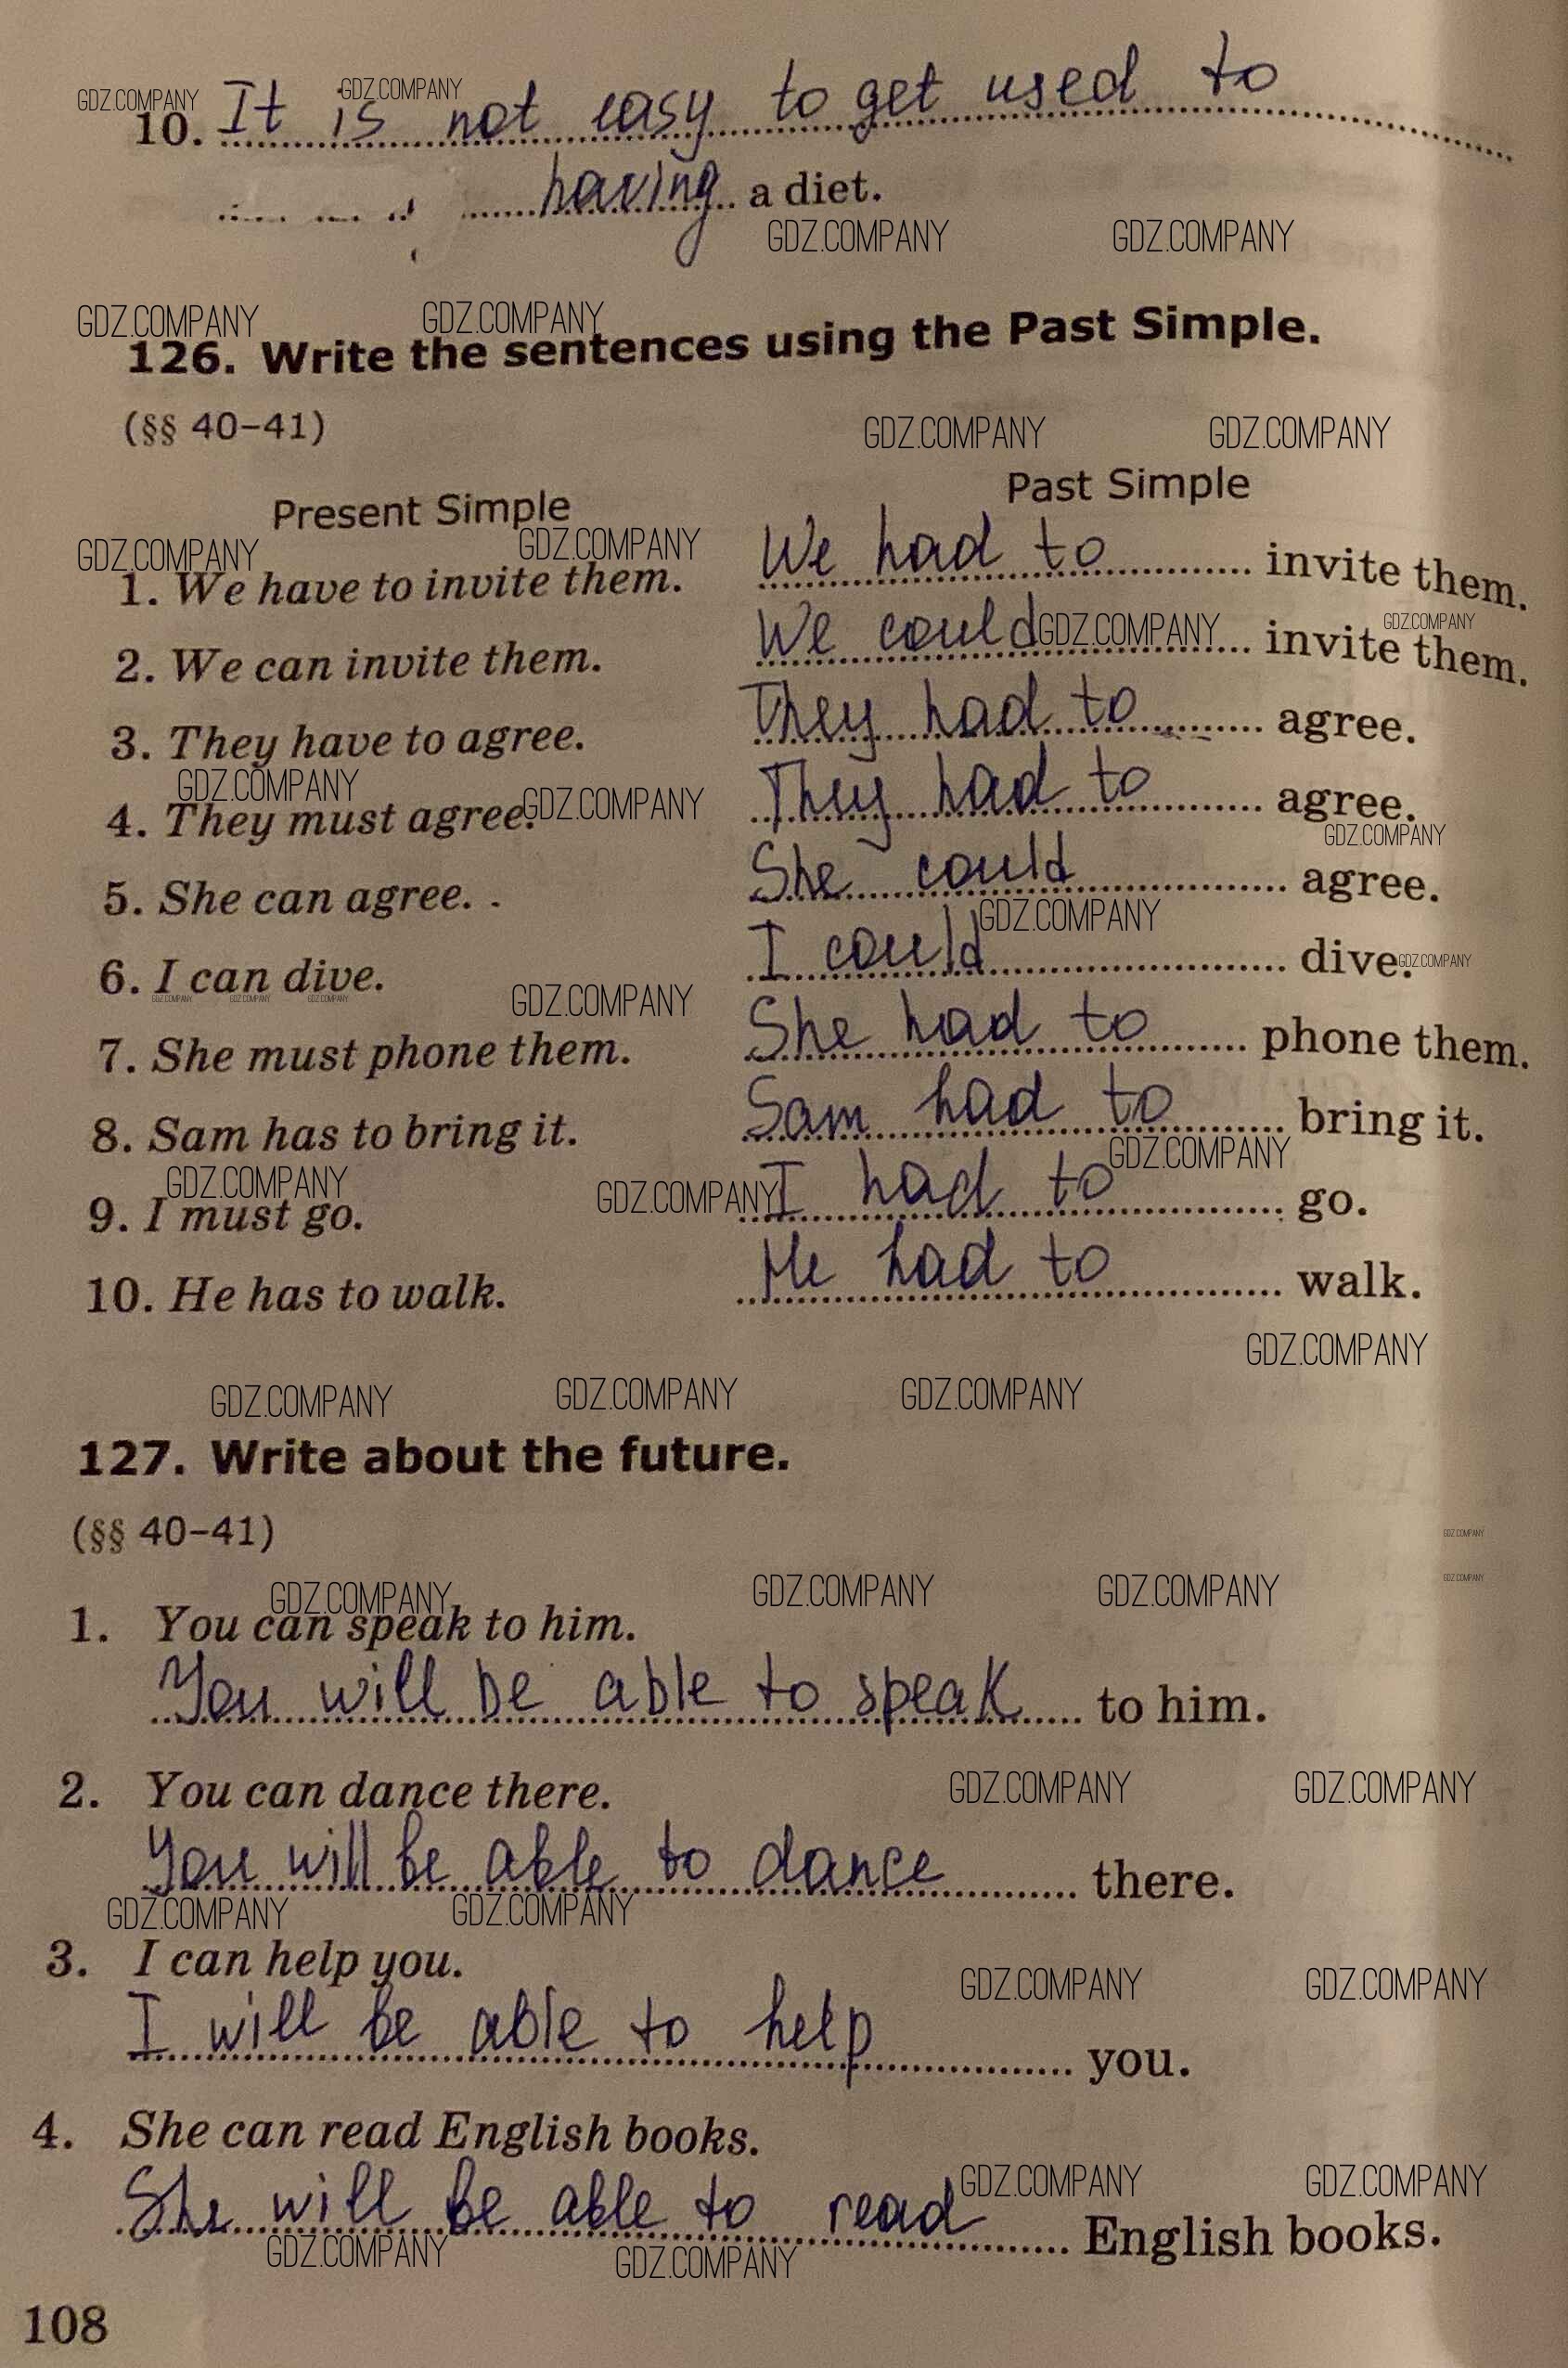 10. It is not easy to get used to
having a diet.
126. Write the sentences using the Past Simple.
(§§ 40–41)
Present Simple Past Simple
1. We have to invite them. We had to invite them.
2. We can invite them. We could invite them.
3. They have to agree. They had to agree.
4. They must agree. They had to agree.
5. She can agree. She could agree.
6. I can dive. I could dive.
7. She must phone them. She had to phone them.
8. Sam has to bring it. Sam had to bring it.
9. I must go. I had to go.
10. He has to walk. He had to walk.
127. Write about the future.
(§§ 40–41)
1. You can speak to him.
You will be able to speak to him.
2. You can dance there.
You will be able to dance there.
3. I can help you.
I will be able to help you.
4. She can read English books.
She will be able to read English books.
108
GDZ.COMPANY